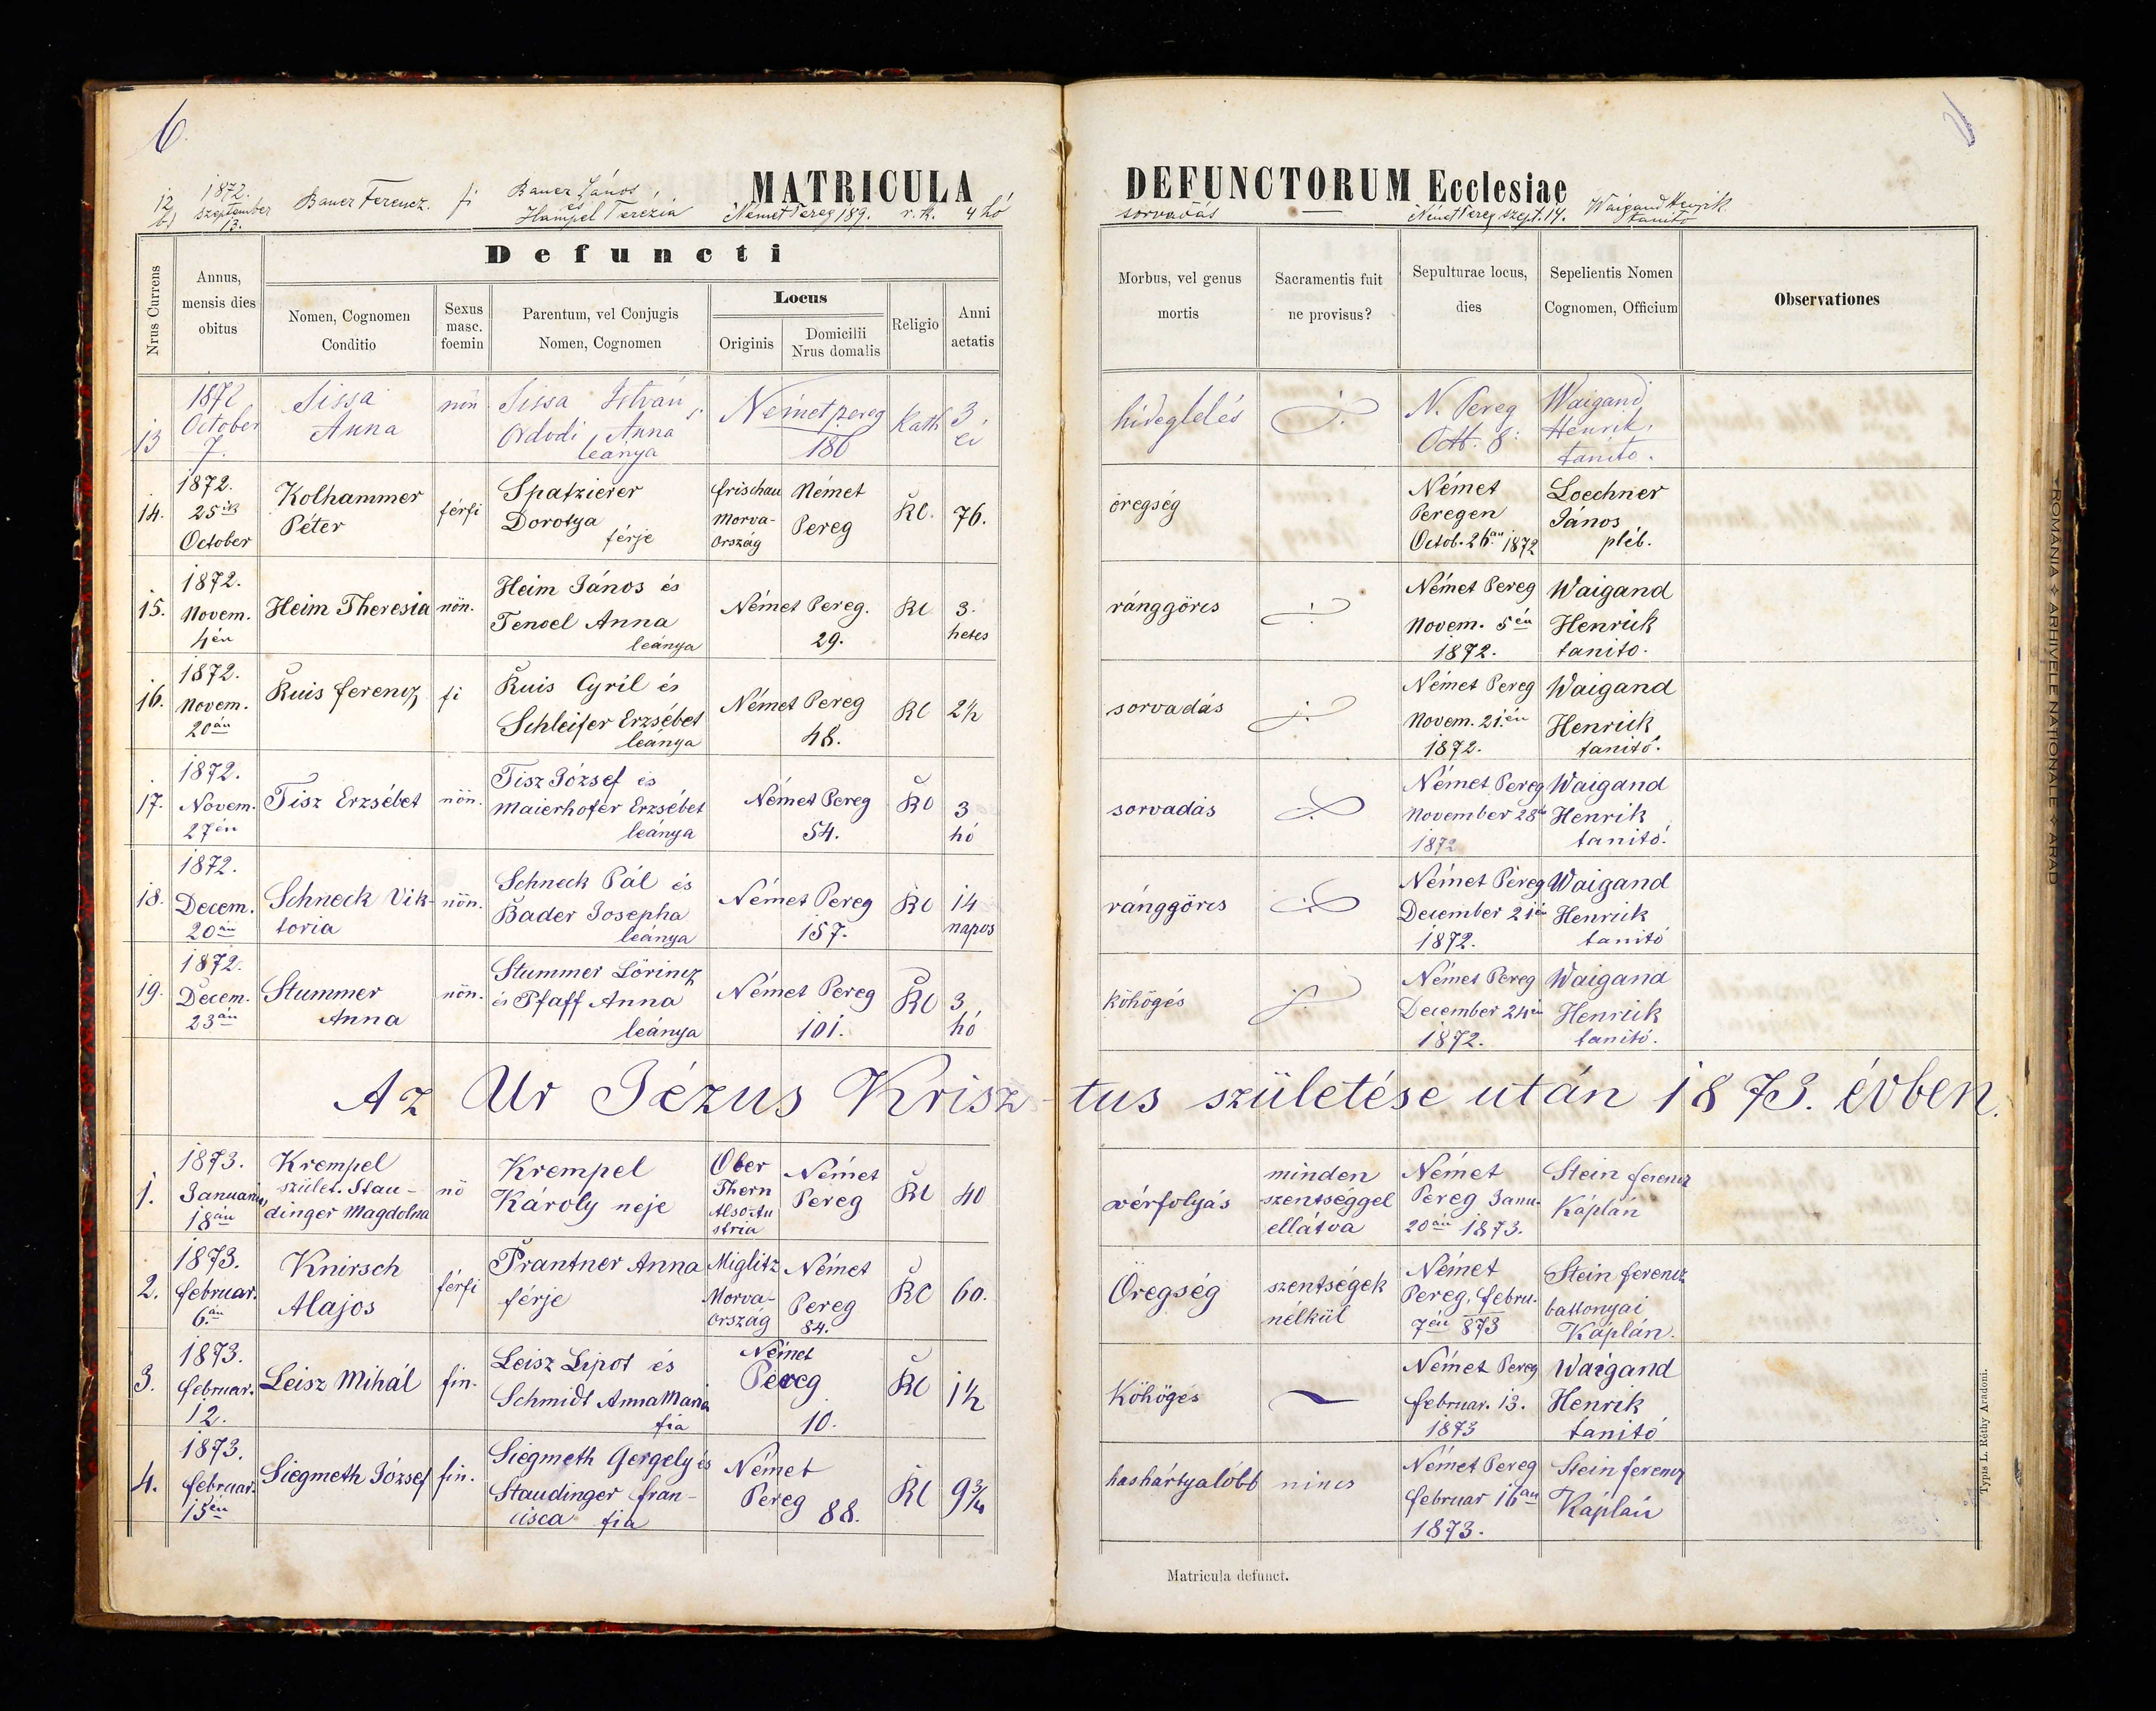 6.
MATRICULA DEFUNCTORUM Ecclesiae
12 b) 1872. szeptember 13. Bauer Ferencz. fi Bauer János, és Hampel Terézia Német Pereg 189. r. k. 4 hó sorvadás — Német Pereg szept. 14. Waigand Henrik tanitó
Defuncti
Nrus Currens
Annus, mensis dies obitus
Nomen, Cognomen Conditio
Sexus masc. foemin
Parentum, vel Conjugis Nomen, Cognomen
Locus
Originis
Domicilii Nrus domalis
Religio
Anni aetatis
Morbus, vel genus mortis
Sacramentis fuit ne provisus?
Sepulturae locus, dies
Sepelientis Nomen Cognomen, Officium
Observationes
13 1872. October 7. Sissa Anna nőn Sissa István, Ordodi Anna leánya Német pereg 186 Kath 3 hideglelés N. Pereg Octb. 8. Waigand Henrik, tanito.
14. 1872. 25ik October Kolhammer Péter férfi Spatzierer Dorotya férje frischau Morva-Ország Német Pereg RC. 76. öregség Német Peregen Octob. 26án 1872 Loechner János pléb.
15. 1872. Novem. 4én Heim Theresia nőn. Heim János és Tenoel Anna leánya Német Pereg. 29. RC 3. hetes ránggörcs Német Pereg Novem. 5én 1872. Waigand Henrik tanito.
16. 1872. Novem. 20án Ruis ferencz fi Ruis Cyríl és Schleifer Erzsébet leánya Német Pereg 48. RC 2½ sorvadás Német Pereg Novem. 21.én 1872. Waigand Henrik tanitó.
17. 1872. Novem. 27én Tisz Erzsébet nőn. Tisz József és Maierhofer Erzsébet leánya Német Pereg 54. RC 3 hó sorvadás Német Pereg November 28án 1872 Waigand Henrik tanitó.
18. 1872. Decem. 20án Schneck Viktoria nőn. Schneck Pál és Bader Josepha leánya Német Pereg 157. RC 14 napos ránggörcs Német Pereg December 21én 1872. Waigand Henrik tanitó
19. 1872. Decem. 23án Stummer Anna nőn. Stummer Lőrincz és Pfaff Anna leánya Német Pereg 101. RC 3 hó köhögés Német Pereg December 24én 1872. Waigand Henrik tanitó.
Az Ur Jézus Krisztus születése után 1873. évben.
1. 1873. Januarius 18án Krempel szület. Staudinger Magdolna nő Krempel Károly neje Ober Thern Alsó-Austria Német Pereg RC 40 vérfolyás minden szentséggel ellátva Német Pereg Janu. 20án 1873. Stein ferencz Káplán
2. 1873. februar. 6.án Knirsch Alajos férfi Prantner Anna férje Miglitz Morva-ország Német Pereg 84. RC 60. Öregség szentségek nélkül Német Pereg, febru. 7én 873 Stein ferencz battonyai Káplán.
3. 1873. februar. 12. Leisz Mihál fin. Leisz Lipot és Schmidt Anna Maria fia Német Pereg 10. RC 1½ Köhögés Német Pereg februar. 13. 1873 Waigand Henrik tanitó
4. 1873. februar. 15én Siegmeth József fin. Siegmeth Gergely és Staudinger francisca fia Német Pereg 88. RC 9¾ hashártyalobb nincs Német Pereg februar 16án 1873. Stein ferencz Káplán
Matricula defunct.
Typis L. Réthy Aradoni.
ROMÂNIA ARHIVELE NATIONALE ARAD